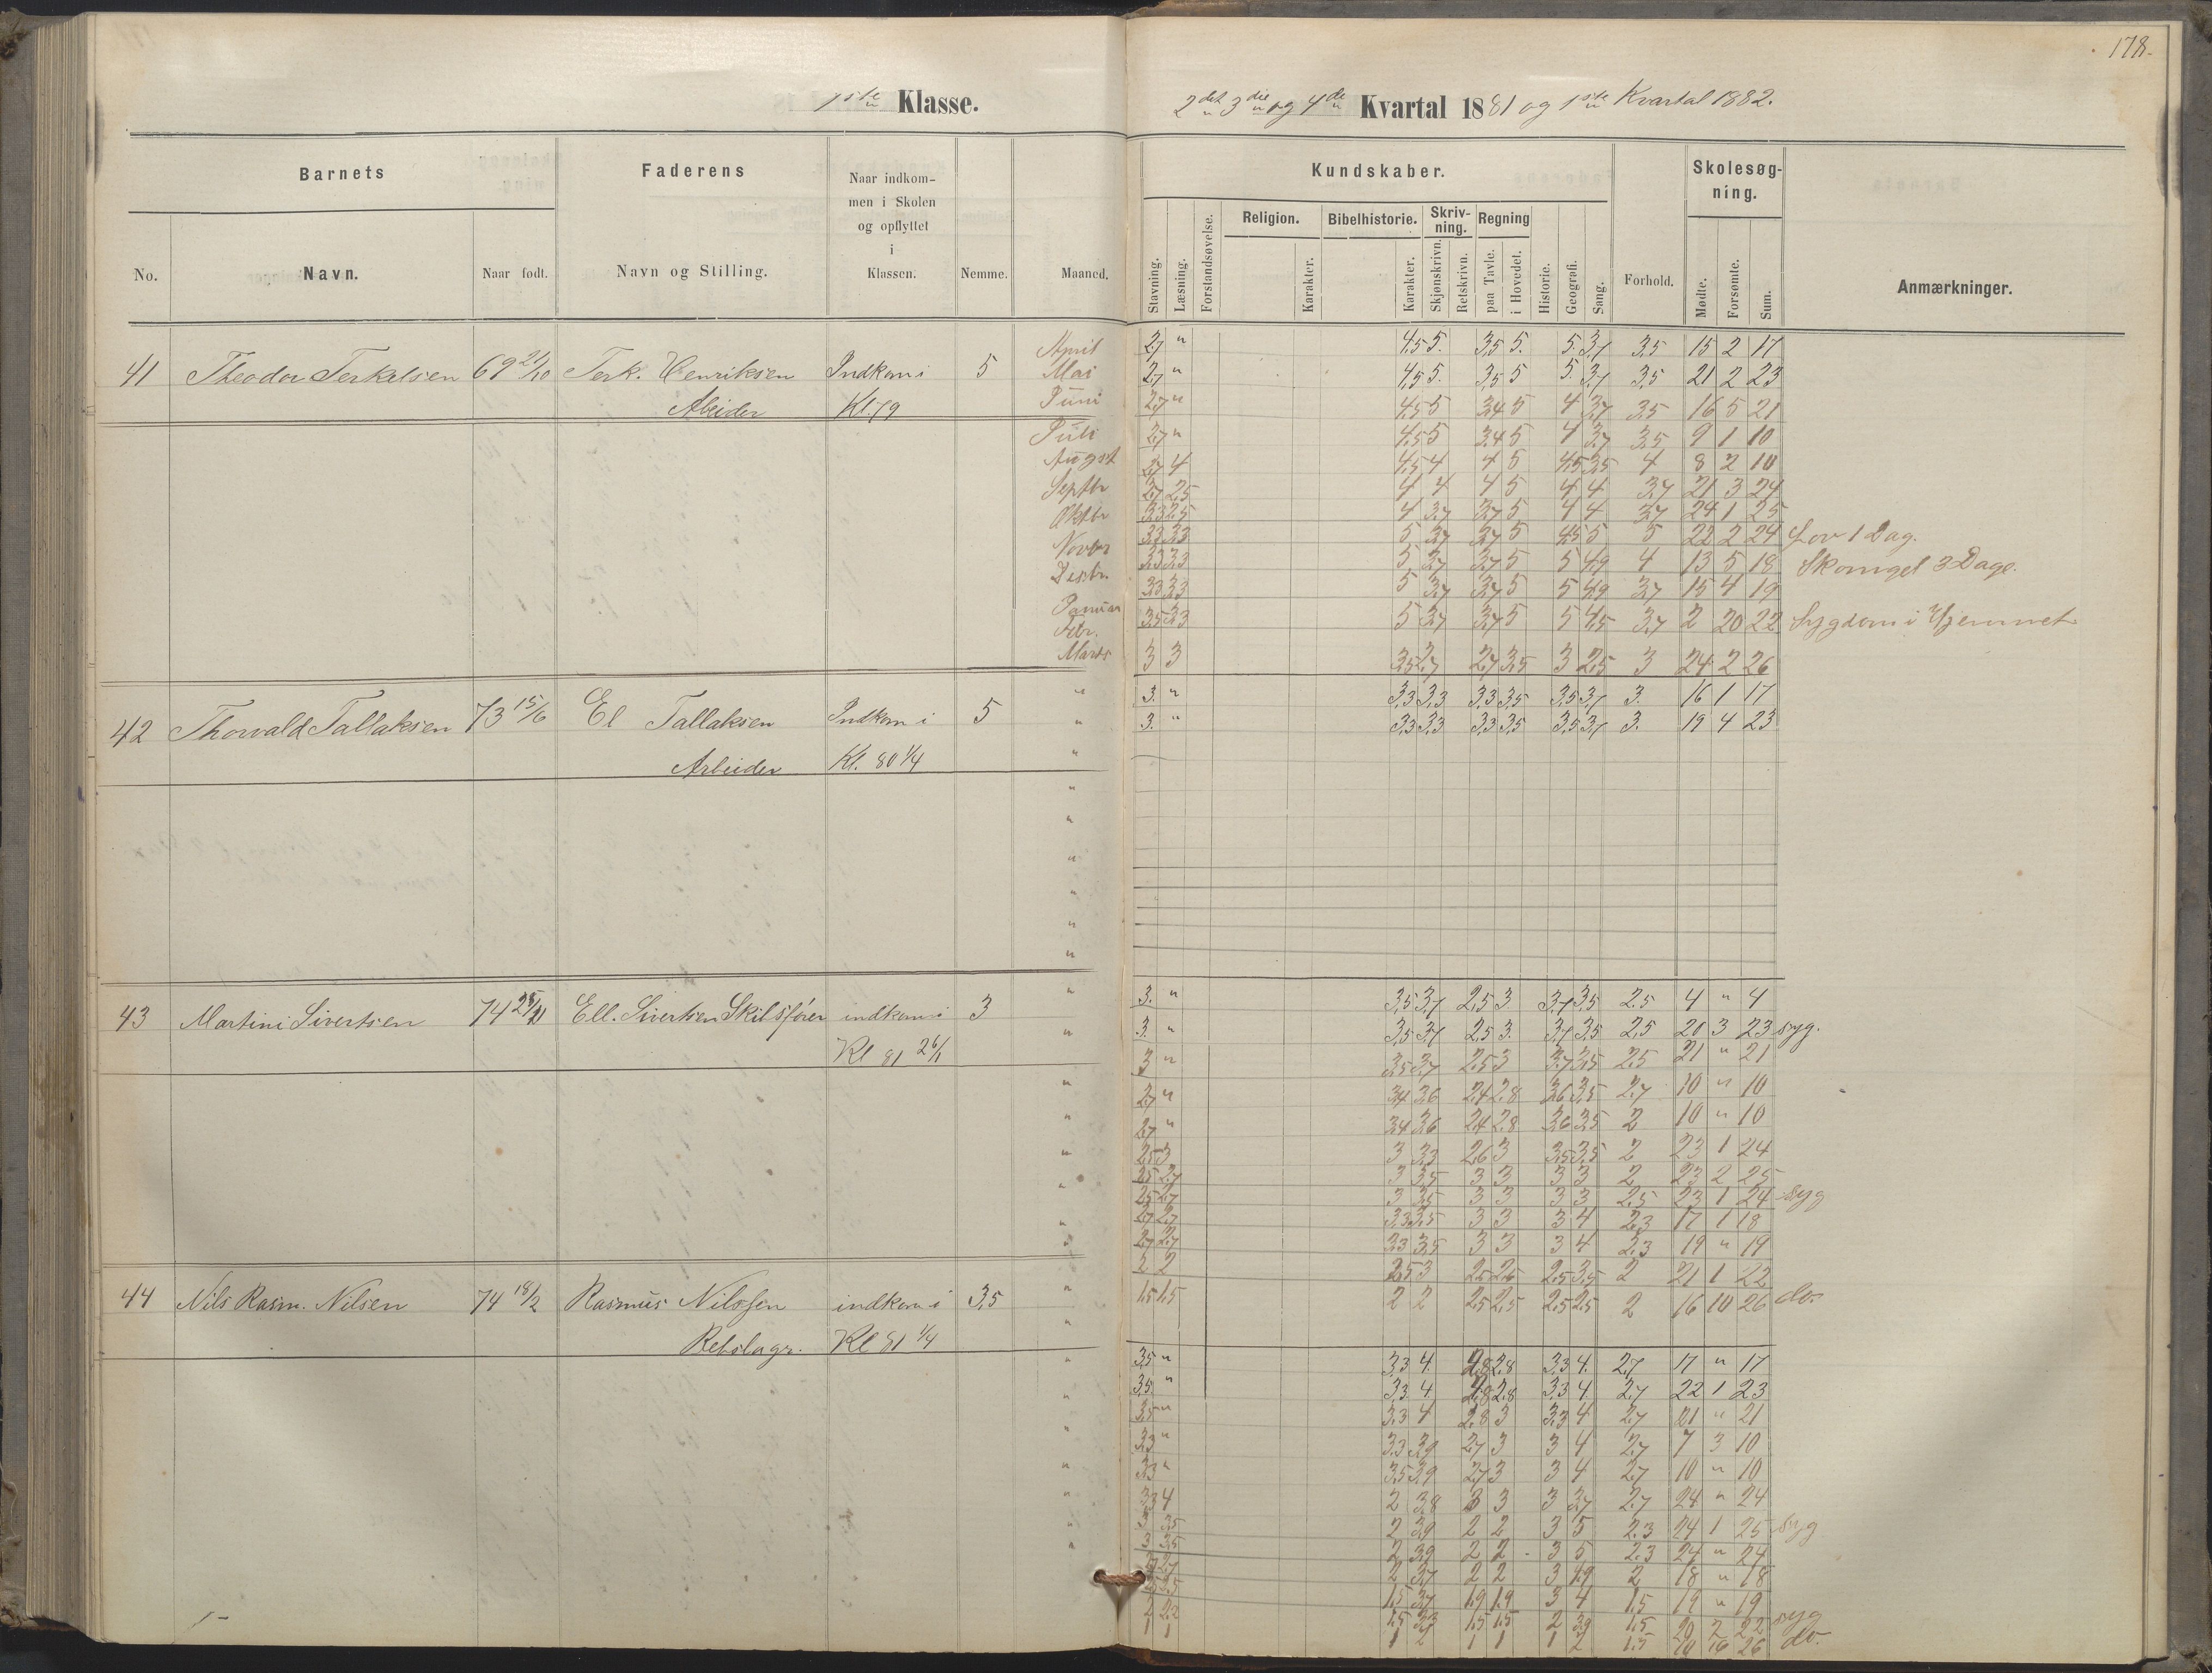 178.
1ste Klasse.
2det 3die og 4de Kvartal 1881 og 1ste Kvartal 1882.
Barnets
Faderens
Naar indkom-
men i Skolen
og opflyttet
i
Klassen.
Kundskaber.
Skolesøg-
ning.
Religion. Bibelhistorie. Skriv-
ning. Regning
No. Navn. Naar født. Navn og Stilling. Nemme. Maaned.
Stavning. Læsning. Forstandsøvelse. Karakter. Karakter. Skjønskrivn. Retskrivn. paa Tavle. i Hovedet. Historie. Geografi. Sang. Forhold. Mødte. Forsømte. Sum. Anmærkninger.
April 2,7 " 4,5 5. 3,5 5. 5. 3,7 3,5 15 2 17
41 Theodor Terkelsen 69 21/10 Terk. Henriksen Indkom i 5 Mai 2,7 " 4,5 5. 3,5 5 5. 3,7 3,5 21 2 23
Abeider Kl. 79 Juni 2,7 " 4,5 5 3,4 5 4 3,7 3,5 16 5 21
Juli 2,7 " 4,5 5 3,4 5 4 3,7 3,5 9 1 10
Augst 2,7 4 4,5 4 4 5 4,5 3,5 4 8 2 10
Septbr 2,7 2,5 4 4 4 5 4 4 3,7 21 3 24
Oktbr 3,3 2,5 4 3,7 3,7 5 4 4 3,7 24 1 25
Novbr 3,3 3,3 5 3,7 3,7 5 4,5 5 5 22 2 24 Lov 1 Dag.
Desbr. 3,3 3,3 5 3,7 3,7 5 5 4,9 4 13 5 18 Skomgel 3 Dage.
Januar 3,3 3,3 5 3,7 3,7 5 5 4,9 3,7 15 4 19
Febr. 3,5 3,3 5 3,7 3,7 5 5 4,5 3,7 2 20 22 Sygdom i Hjemmet
Marts 3 3 3,5 2,7 2,7 3,5 3 2,5 3 24 2 26
" 3. " 3,3 3,3 3,3 3,5 3,5 3,7 3. 16 1 17
42 Thorvald Tallaksen 73 15/6 El Tallaksen Indkom i 5 " 3. " 3,3 3,3 3,3 3,5 3,5 3,7 3. 19 4 23
Arbeider Kl. 80 1/4 "
" 3. " 3,5 3,7 2,5 3 3,7 3,5 2.5 4 " 4
43 Martini Sivertsen 74 Ell. Sivertsen Skibsfører indkom i 3 " 3. " 3,5 3,7 2,5 3. 3,7 3,5 2,5 20 3 23 syg.
Kl 81 26/1 3 " 3,5 3,7 2,5 3 3,7 3,5 2,5 21 " 21
2,7 " 3,4 3,6 2,4 2,8 3,6 3,5 2,7 10 " 10
2,7 " 3,4 3,6 2,4 2,8 3,6 3,5 2 10 " 10
2,5 3 3 3,3 2,6 3 3,5 3,5 2 23 1 24
2,5 2,7 3 3,5 3 3 3 3 2 23 2 25
2,5 2,7 3 3,5 3 3 3 3 2,5 23 1 24 syg
2,7 2,7 3,3 3,5 3 3 3 4 2,3 17 1 18
2,7 2,7 3,3 3,5 3 3 3 4 2,3 19 " 19
2 2 2,5 3 2,5 2,5 2,5 3,5 2 21 1 22
44 Nils Rasm. Nilsen 74 18/2 Rasmus Nilssen indkom i 3,5 " 1,5 1,5 2 2 2,5 2,5 2,5 2,5 2 16 10 26 do.
Rebslagr. Kl 81 1/4 "
3,5 " 3,3 4. 2,8 2,8 3,3 4. 2,7 17 " 17
3,5. " 3,3 4. 2,8 2,8 3,3 4. 2,7 22 1 23
3,5 " 3,3 4 2,8 3 3,3 4 2,7 21 " 21
3,3 " 3,3 3,9 2,7 3 3 4 2,7 7 3 10
3,3 " 3,5 3,9 2,7 3 3 4 2,7 10 " 10
3,3 4 2 3,8 3 3 3 3,7 2,7 24 " 24
3 3,5 2 3,9 2 2 3 5 2,3 24 1 25 syg
3 3,5 2 3,9 2 2 3 5 2,3 24 " 24
2,7 2,7 2 3,7 2 2 3 4,9 2 18 " 18
1,5 3,7 1,9 1,9 3 4 1,5 19 " 19
2 2,2 1,5 3,3 1,5 1,5 2 3,9 1,5 20 2 22 syg
1 1 1 2 1 1 1 2 1,5 10 16 26 do.
1-